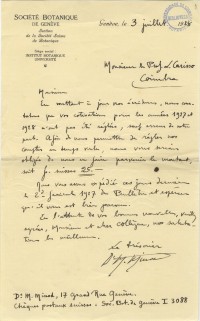 SOCIÉTÉ BOTANIQUE
DE GENÈVE
Section
de la Société Suisse
de Botanique
Siège social
INSTITUT BOTANIQUE
UNIVERSITÉ
Genève, le 3 juillet 1928
Monsieur le Prof. L. Carisso
Coimbra
Monsieur
En mettant à jour nos écritures, nous cons-
tatons que vos cotisations pour les années 1927 et
1928 n'ont pas été réglées, sauf erreur de notre
part. Afin de nous permettre de régler nos
comptes en temps voulu, nous vous serions
obligés de nous en faire parvenir le montant,
soit frs suisses 25.—
Nous vous avons expédié ces jours derniers
le 2e fascicule 1927 du Bulletin et espérons
qu'il vous est bien parvenu.
En l'attente de vos bonnes nouvelles,
agréez, Monsieur et cher collègue, nos saluta-
tions les meilleures.
Le trésorier
Dr. M. Minod, 17 Grand Rue Genève.
Chèques postaux suisses. Soc. Bot. de Genève I 2088